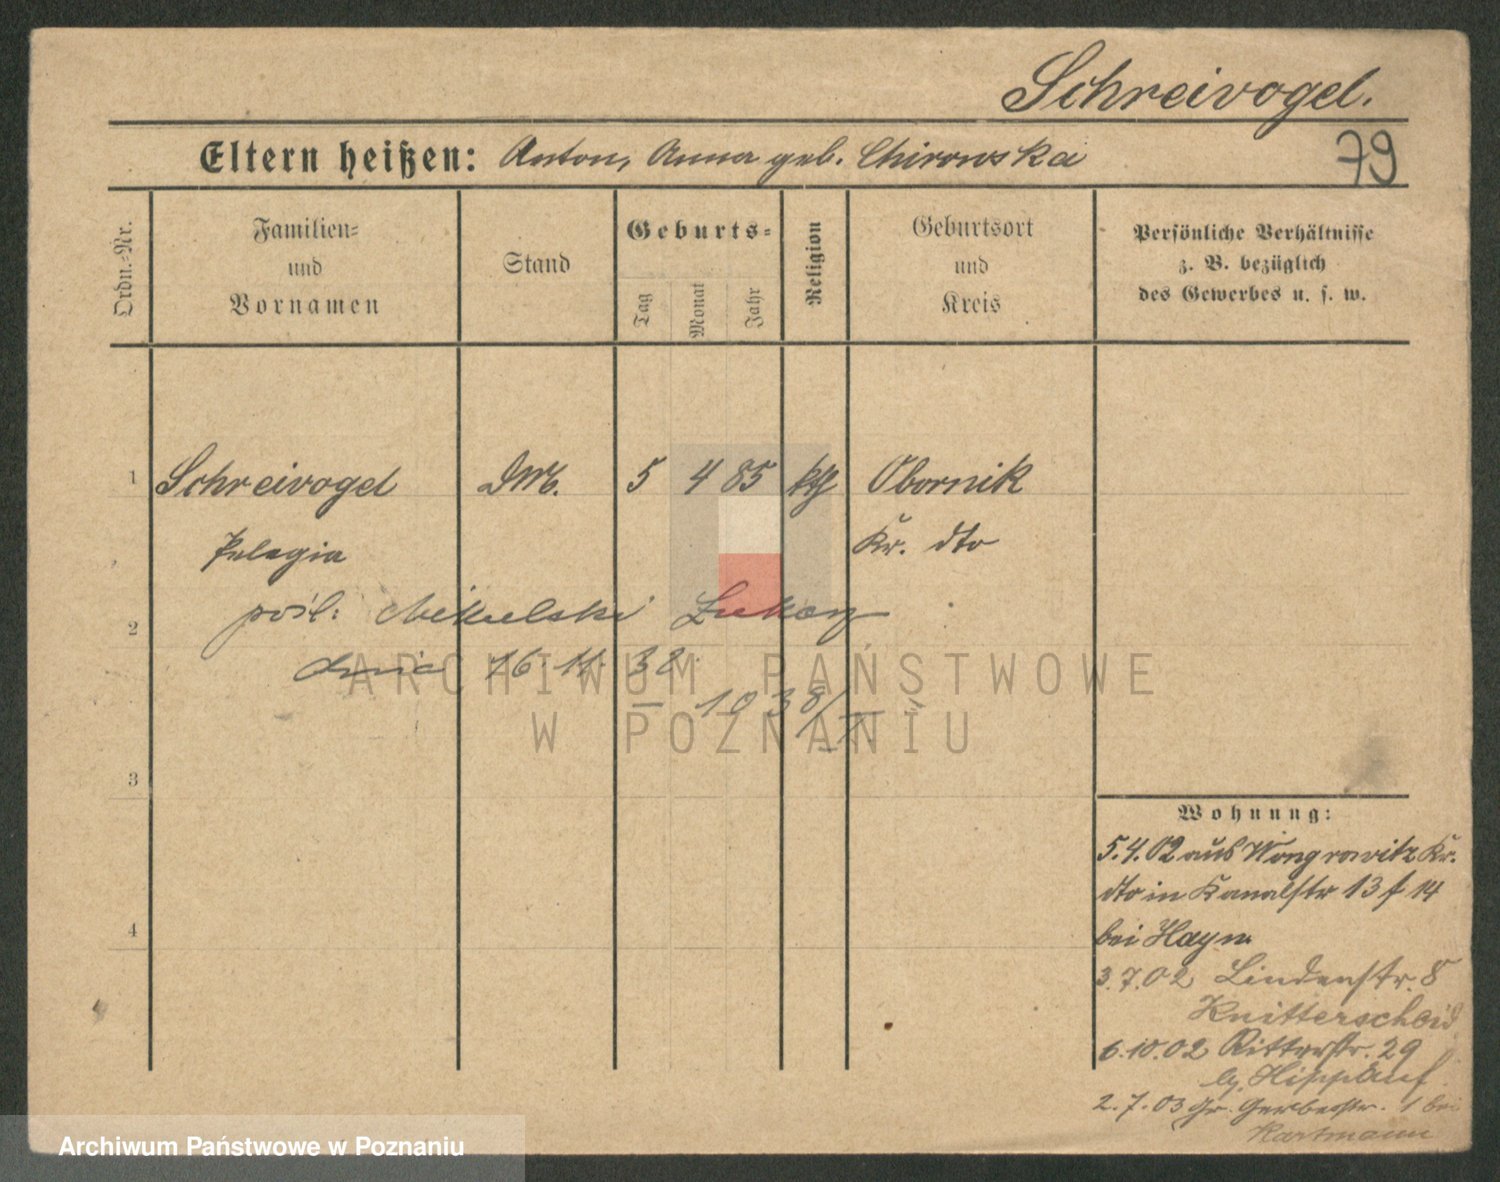 Schreivogel.
Eltern heißen: Anton, Anna geb. Chirowska
79
Ordn.-Nr.
Familien-
und
Vornamen
Stand
Geburts-
Tag
Monat
Jahr
Religion
Geburtsort
und
Kreis
Persönliche Verhältnisse
z. B. bezüglich
des Gewerbes u. s. w.
1 Schreivogel DM. 5 4 85 kth Obornik
Pelagia Kr. dto
pośl: Mikulski Łukasz
2
dnia 16. 11. 38
1038/
3
4
Wohnung:
5.4.02 aus Wongrowitz Kr.
dto in Kanalstr 13 f 14
bei Haym
3.7.02 Lindenstr. 8
Knitterscheid
6.10.02 Ritterstr. 29
Hippauf
2.7.03 Gr. Gerberstr. 1 bei
Hartmann
ARCHIWUM PAŃSTWOWE
W POZNANIU
Archiwum Państwowe w Poznaniu